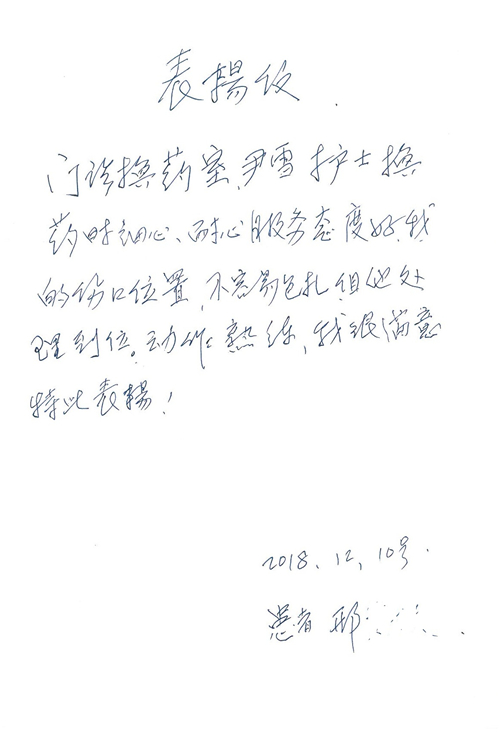 表揚仪
门诊换药室,尹雪护士换
药时细心、耐心服务态度好.我
的伤口位置,不容易包扎但她处
理到位。动作熟练,我很满意
特此表揚!
2018.12.10号.
患者 邢